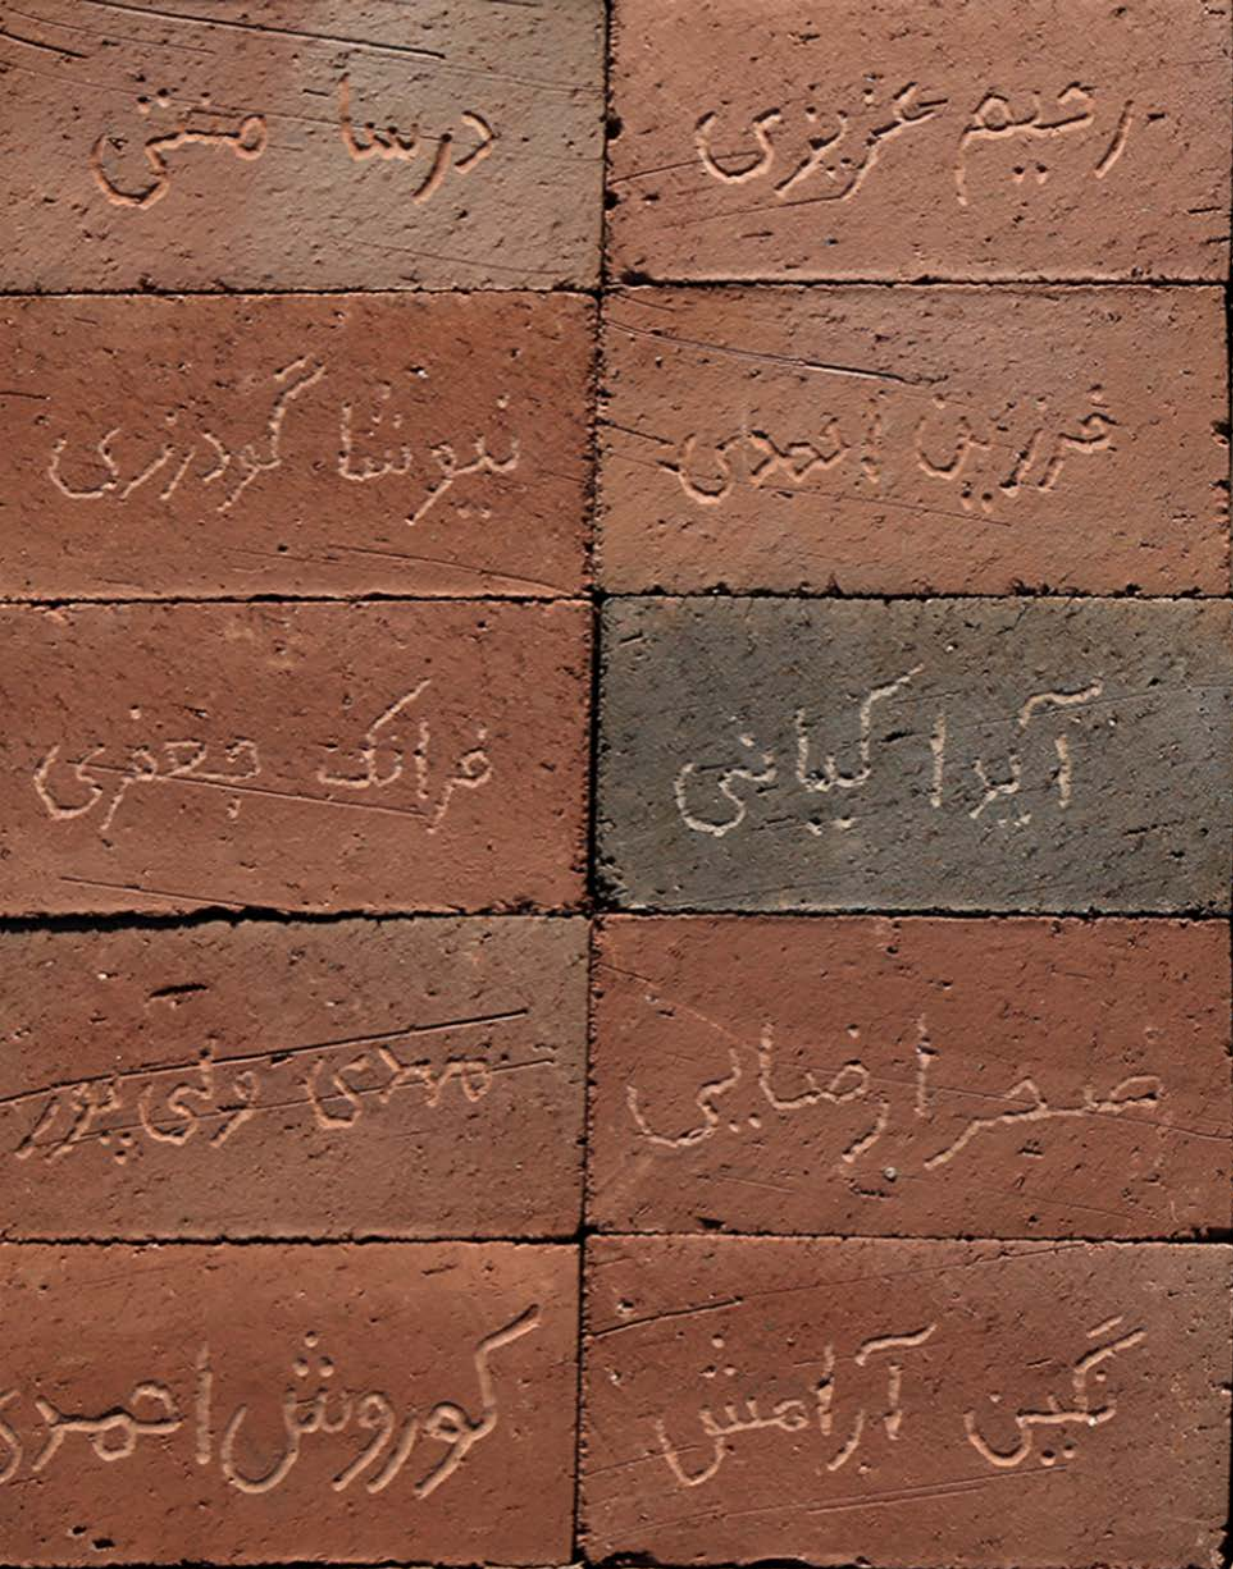 رحیم عزیزی
درسا متقی
فرزین احمدی
نیوشا گودرزی
آیرا کیانی
فرانک جعفری
صحرا رضایی
مهدی ولی‌پور
نگین آرامش
کوروش احمدی